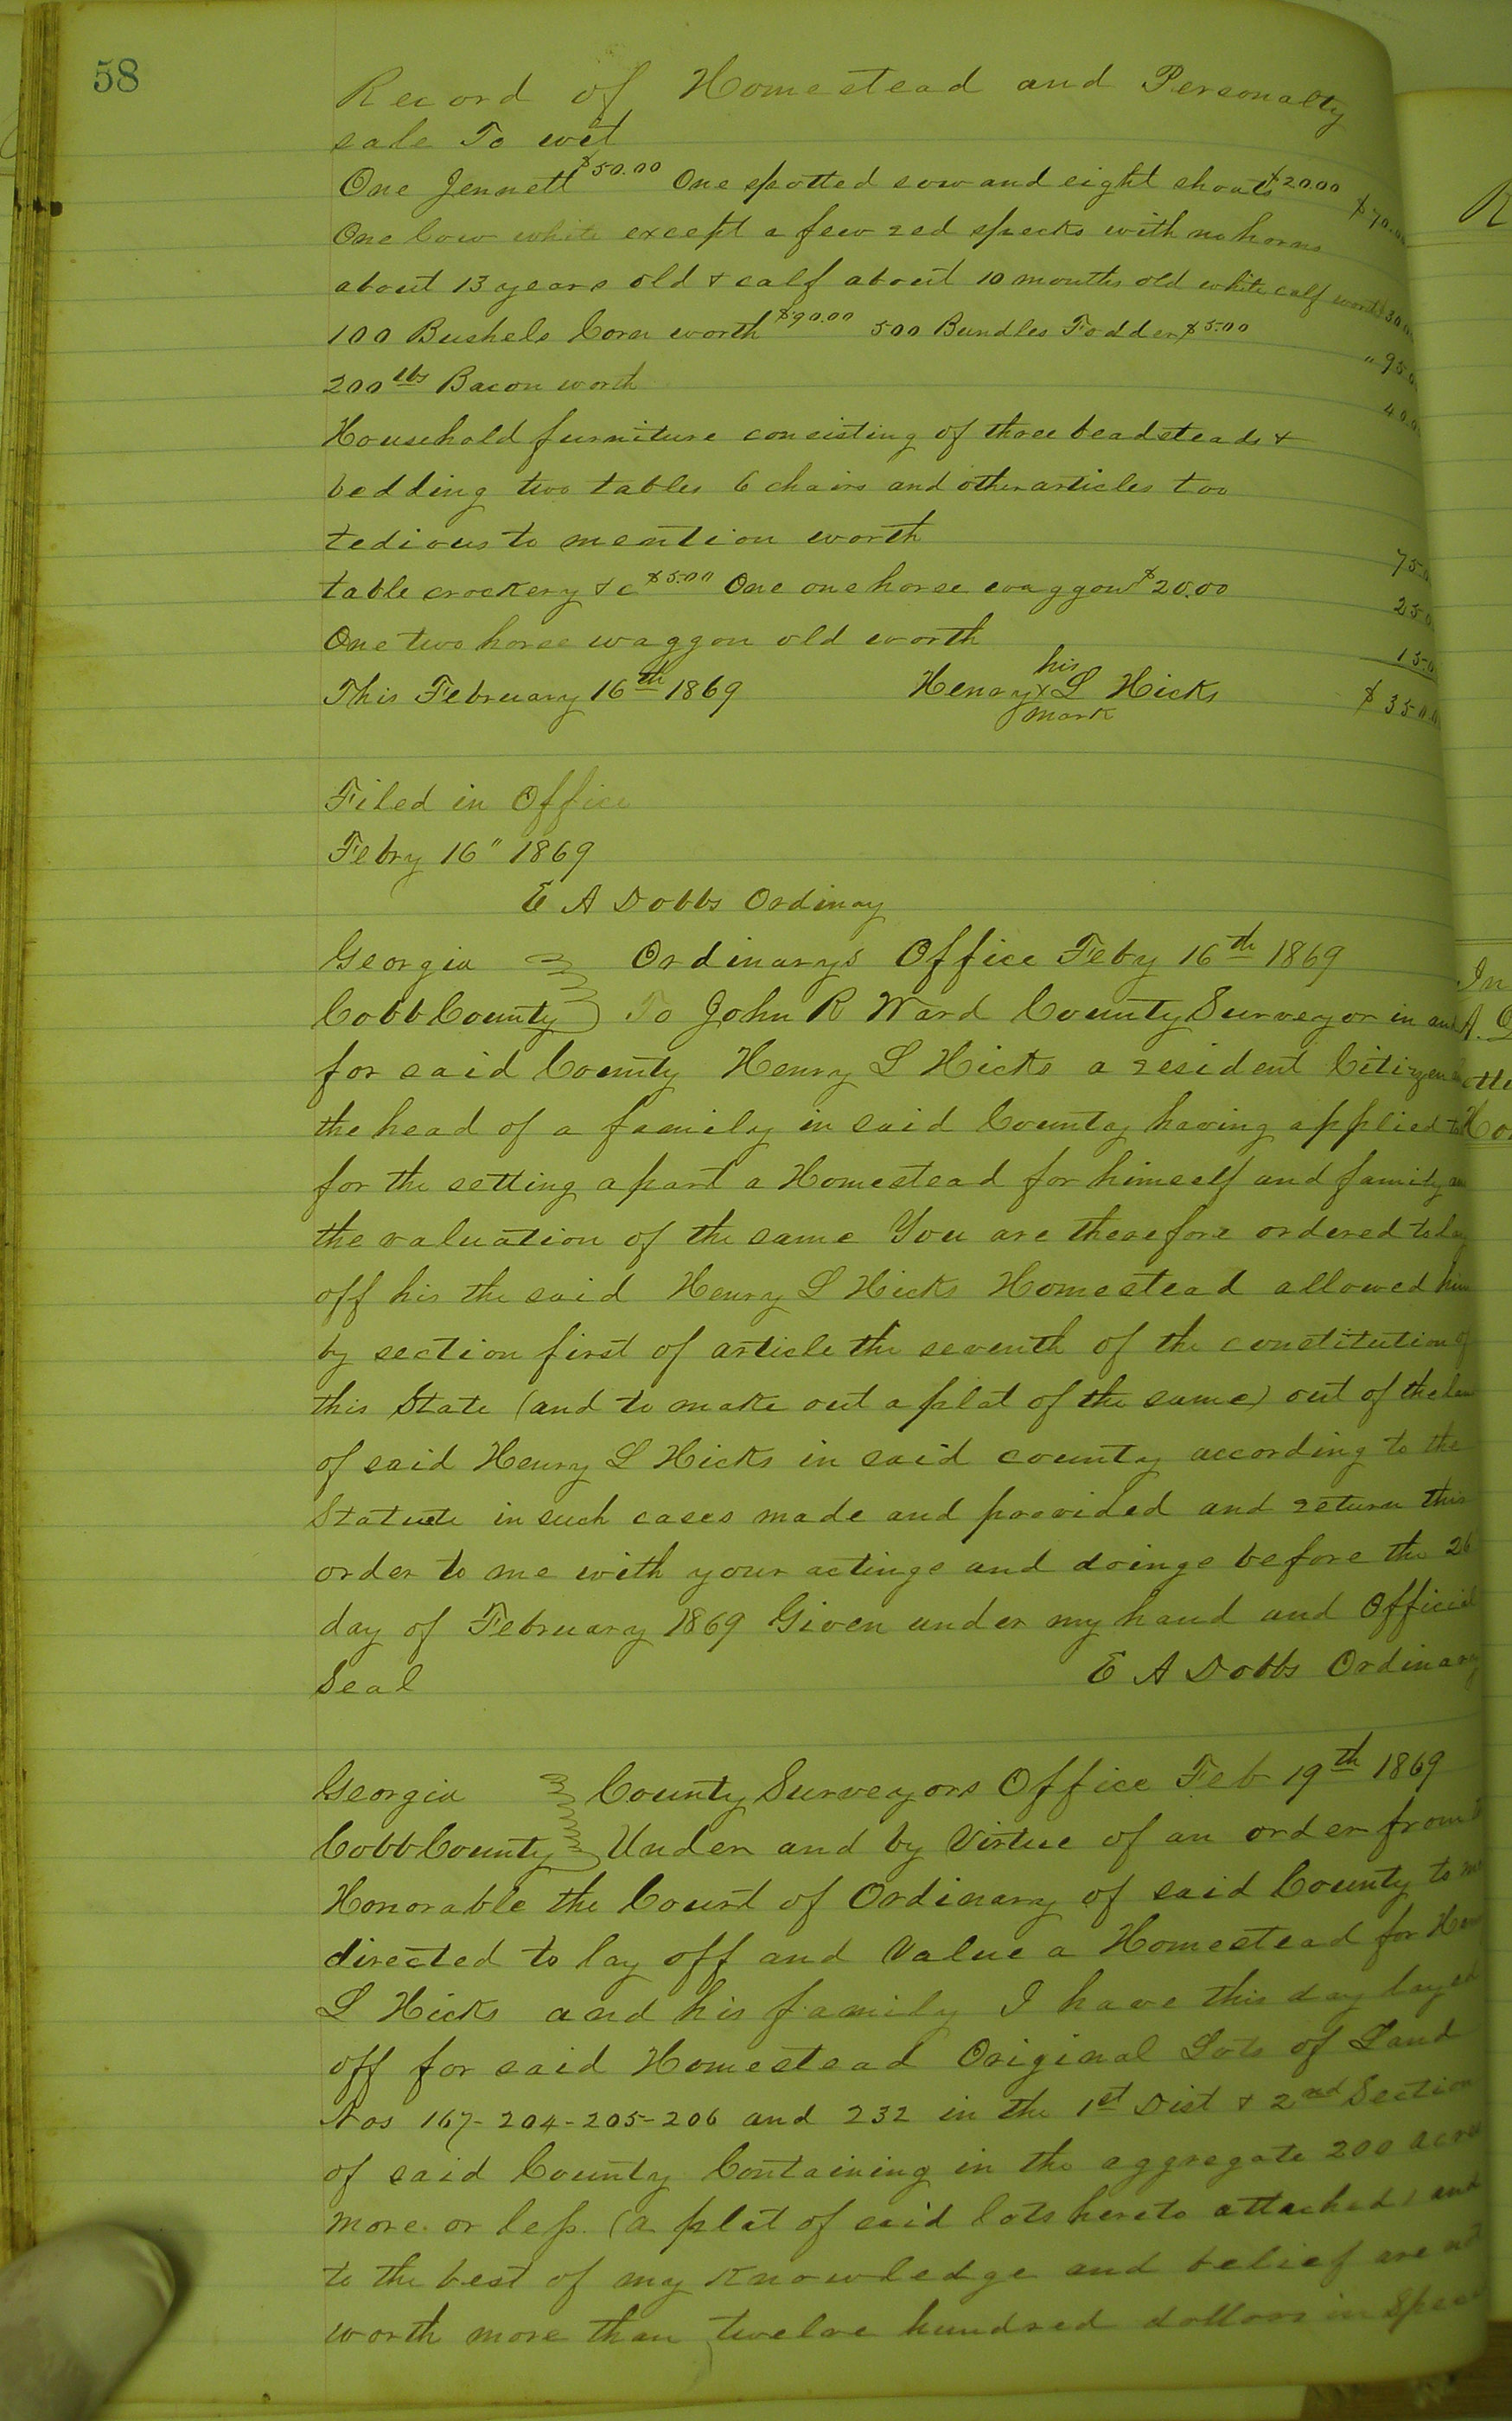 58
Record of Homestead and Personalty
sale To wit
One Jennett $50.00 One spotted sow and eight shoats $20.00 $70.00
One Cow white except a few red specks with no horns
about 13 years old & calf about 10 months old white calf worth $30.0
100 Bushels Corn worth $90.00 500 Bundles Fodder $5.00 " 95.0
200 lbs Bacon worth 40.0
Household furniture consisting of three beadsteads &
bedding two tables 6 chairs and other articles too
tedious to mention worth 75.0
table crockery &c $5.00 One one horse waggon $20.00 25.0
One two horse waggon old worth 15.0
This February 16th 1869 Henry his x mark L Hicks $350.0
Filed in Office
Febry 16" 1869
E A Dobbs Ordinay
Georgia Ordinarys Office Feby 16th 1869
Cobb County To John R Ward County Surveyor in and
for said County Henry L Hicks a resident Citizen
the head of a family in said County having applied to
for the setting apart a Homestead for himself and family
the valuation of the same You are therefore ordered to lay
off his the said Henry L Hicks Homestead allowed him
by section first of article the seventh of the constitution of
this State (and to make out a plat of the same) out of the
of said Henry L Hicks in said county according to the
Statute in such cases made and provided and return this
order to me with your actings and doings before the 26
day of February 1869 Given under my hand and Official
Seal E A Dobbs Ordinary
Georgia County Surveyors Office Feb 19th 1869
Cobb County Under and by Virtue of an order from
Honorable the Court of Ordinary of said County to me
directed to lay off and Value a Homestead for
L Hicks and his family I have this day layed
off for said Homestead Original Lots of Land
Nos 167-204-205-206 and 232 in the 1st Dist & 2nd Section
of said County Containing in the aggregate 200 acres
more or less (a plat of said lots hereto attached) and
to the best of my Knowledge and belief are not
worth more than twelve hundred dollars in